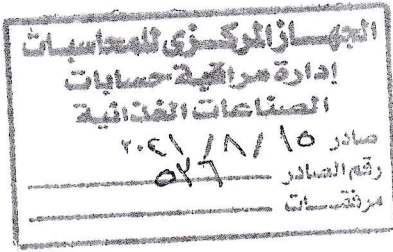 الجهاز المركزى للمحاسبات
إدارة مراقبة حسابات
الصناعات الغذائية
صادر ١٥ / ٨ / ٢٠٢١
رقم الصادر ٥٢٦
مرفقات